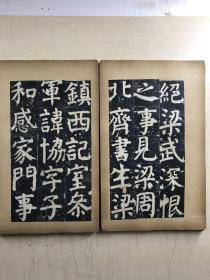 絕梁武深恨
之事見梁周
北齊書生梁
鎮西記室叅
軍諱協字子
和感家門事